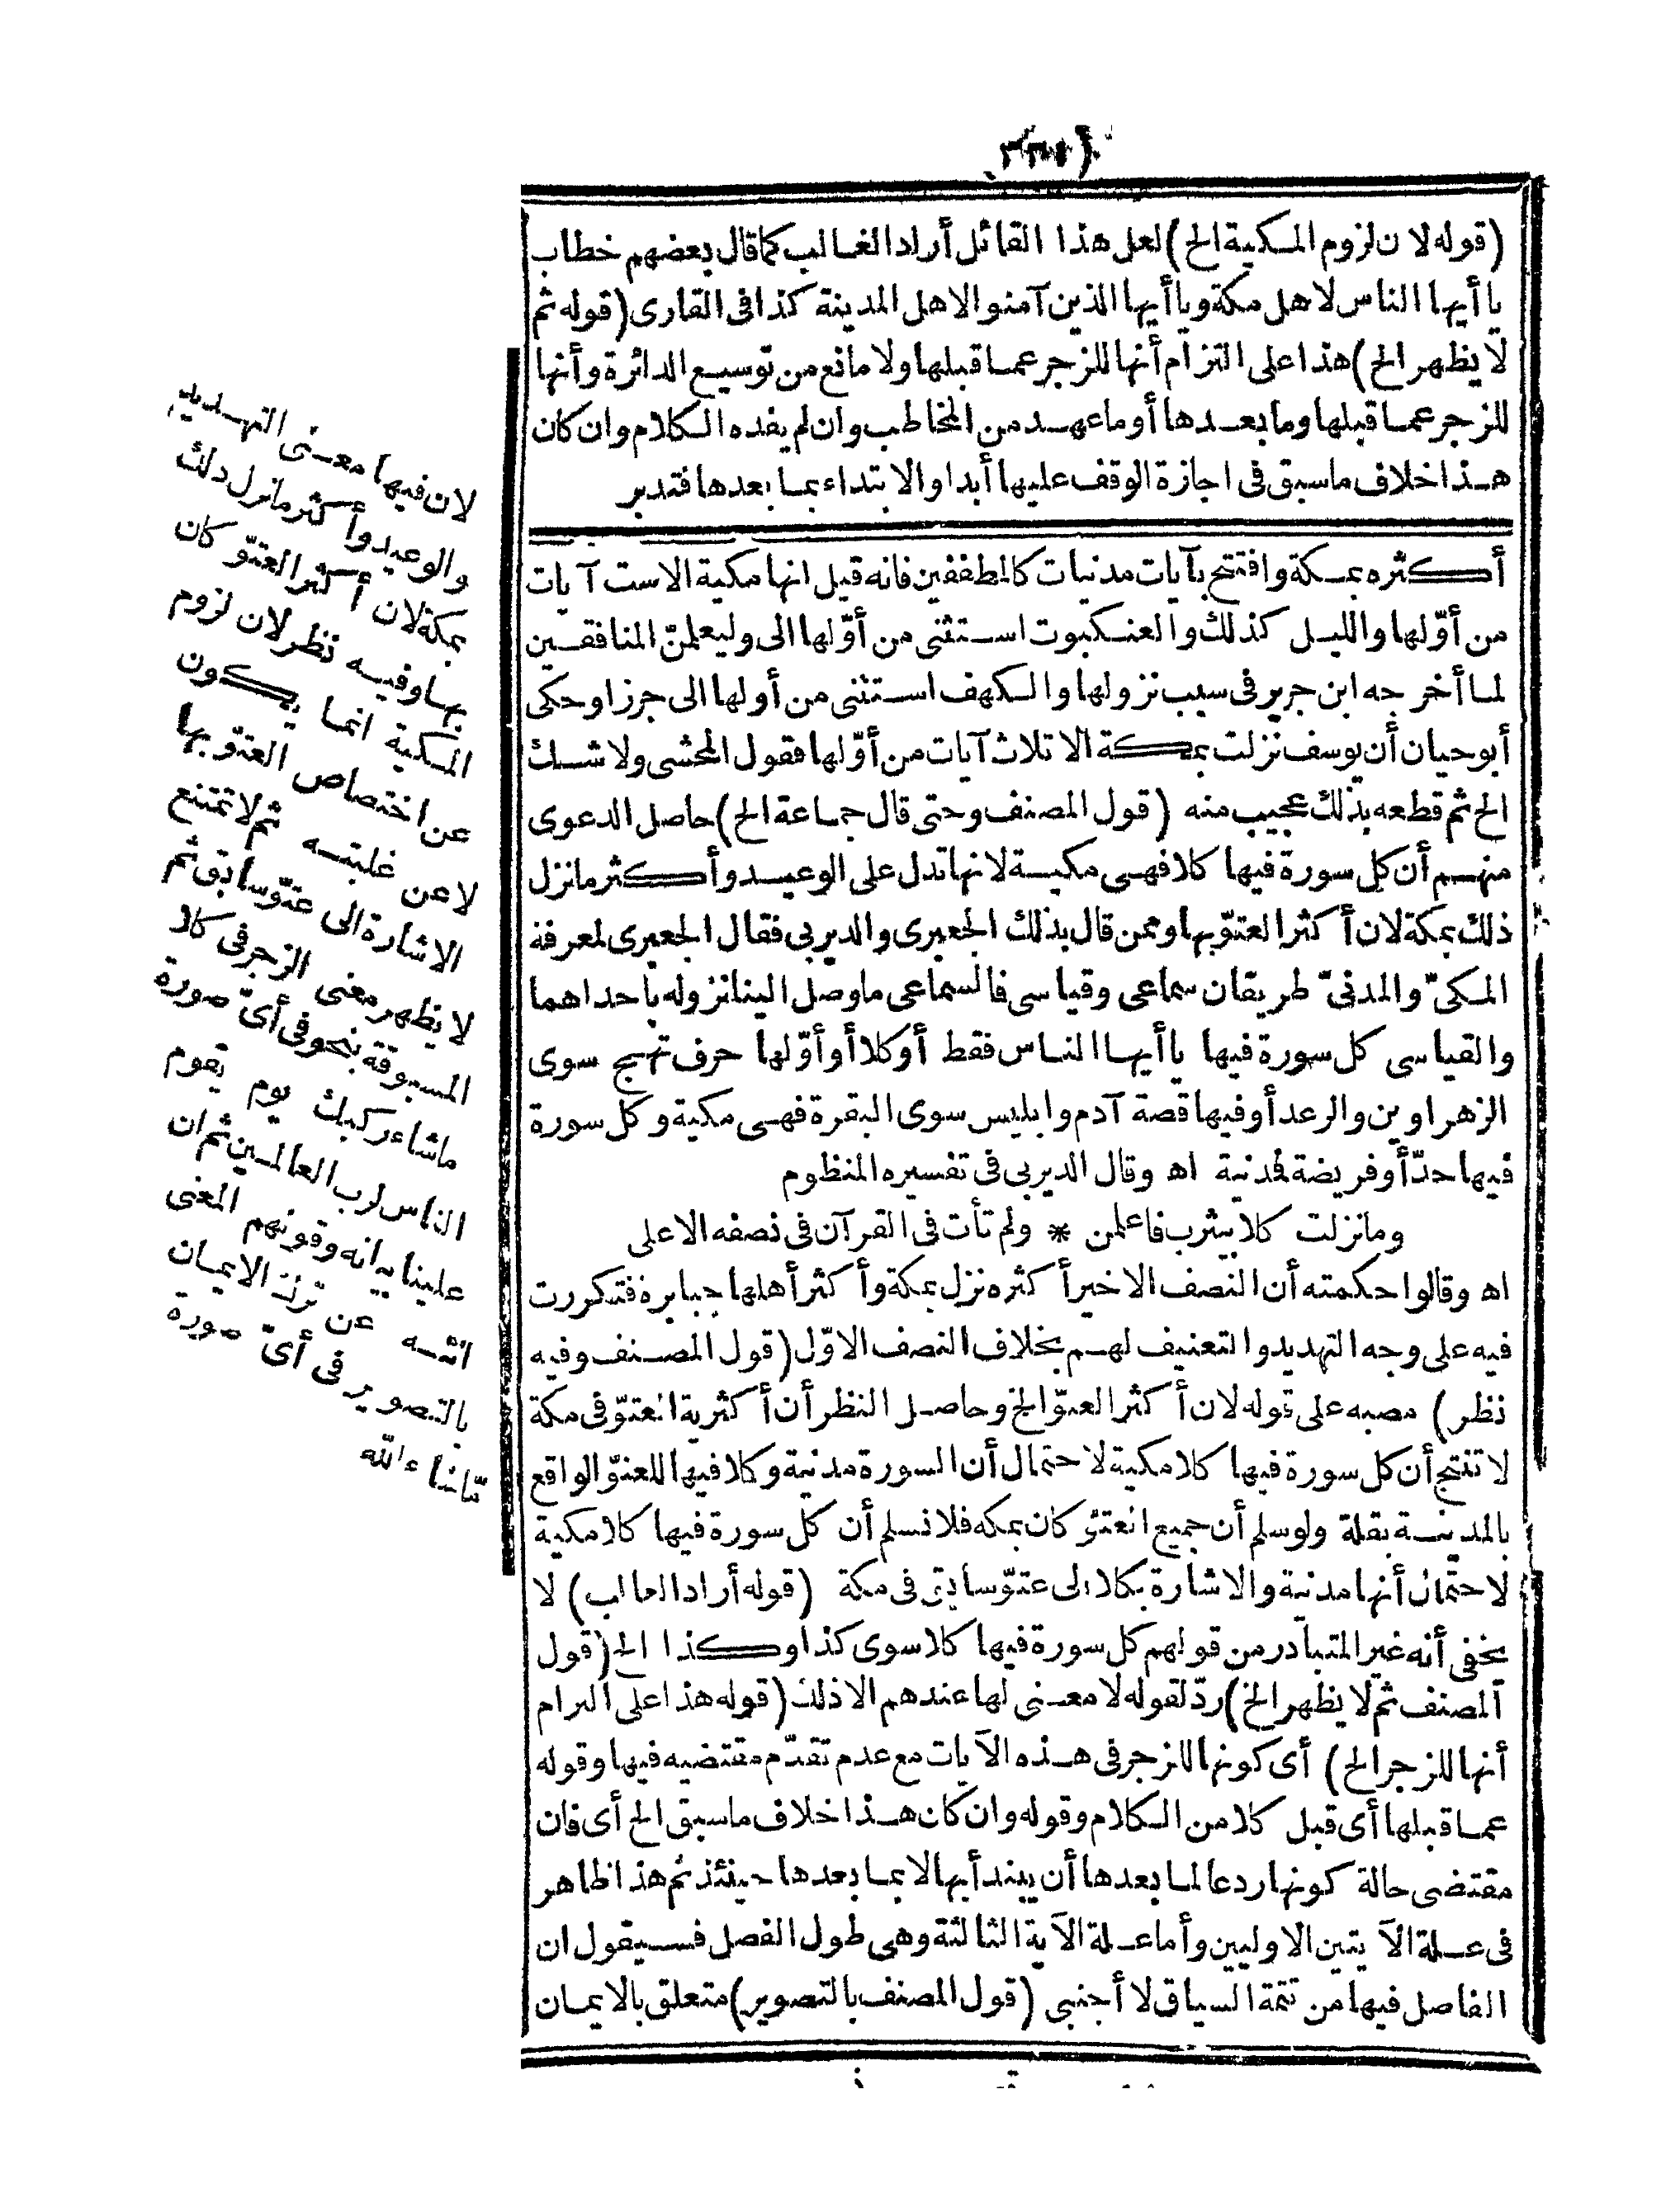 (قوله لان لزوم المكية الخ) لعل هذا القائل أراد الغالب كما قال بعضهم خطاب
يا أيها الناس لاهل مكة ويا أيها الذين آمنوا لاهل المدينة كذا فى القارى (قوله ثم
لا يظهر الخ) هذا على التزام أنها للزجر عما قبلها ولا مانع من توسيع الدائرة وأنها
للزجر عما قبلها وما بعدها أو ما عهد من المخاطب وان لم يفده الكلام وان كان
هذا خلاف ما سبق فى اجازة الوقف عليها أبدا والابتداء بما بعدها فتدبر
أكثره بمكة وافتتح بآيات مدنيات كالمطففين فانه قيل انها مكية الاست آيات
من أوّلها والليل كذلك والعنكبوت استثنى من أوّلها الى وليعلمنّ المنافقين
لما أخرجه ابن جرير فى سبب نزولها والكهف استثنى من أولها الى جرزا وحكى
أبو حيان أن يوسف نزلت بمكة الا ثلاث آيات من أوّلها فقول المحشى ولا شك
الخ ثم قطعه بذلك عجيب منه (قول المصنف وحتى قال جماعة الخ) حاصل الدعوى
منهم أن كل سورة فيها كلا فهى مكية لانها تدل على الوعيد وأكثر ما نزل
ذلك بمكة لان أكثر العتوّ بها وممن قال بذلك الجعبرى والديربى فقال الجعبرى لمعرفة
المكىّ والمدنىّ طريقان سماعى وقياسى فالسماعى ما وصل الينا نزوله باحداهما
والقياسى كل سورة فيها يا أيها الناس فقط أو كلا أو أوّلها حرف تهج سوى
الزهراوين والرعد أو فيها قصة آدم وابليس سوى البقرة فهى مكية وكل سورة
فيها حدّ أو فريضة فمدنية اه وقال الديربى فى تفسيره المنظوم
وما نزلت كلا بيثرب فاعلمن * ولم تأت فى القرآن فى نصفه الاعلى
اه وقالوا حكمته أن النصف الاخير أكثره نزل بمكة وأكثر أهلها جبابرة فتكررت
فيه على وجه التهديد والتعنيف لهم بخلاف النصف الاوّل (قول المصنف وفيه
نظر) مصبه على قوله لان أكثر العتوّ الخ وحاصل النظر أن أكثرية العتوّ فى مكة
لا تنتج أن كل سورة فيها كلا مكية لاحتمال أن السورة مدنية وكلا فيها للعتوّ الواقع
بالمدينة بقلة ولو سلم أن جميع العتوّ كان بمكة فلا نسلم أن كل سورة فيها كلا مكية
لاحتمال أنها مدنية والاشارة بكلا الى عتوّ سابق فى مكة (قوله أراد الغالب) لا
يخفى أنه غير المتبادر من قولهم كل سورة فيها كلا سوى كذا وكذا الخ (قول
المصنف ثم لا يظهر الخ) ردّ لقوله لا معنى لها عندهم الا ذلك (قوله هذا على التزام
أنها للزجر الخ) أى كونها للزجر فى هذه الآيات مع عدم تقدّم مقتضيه فيها وقوله
عما قبلها أى قبل كلا من الكلام وقوله وان كان هذا خلاف ما سبق الخ أى فان
مقتضى حالة كونها ردعا لما بعدها أن يبتدأ بها لا بما بعدها حينئذ ثم هذا ظاهر
فى علة الآيتين الاوليين وأما علة الآية الثالثة وهى طول الفصل فسيقول ان
الفاصل فيها من تتمة السياق لا أجنبى (قول المصنف بالتصوير) متعلق بالايمان
لان فيها معنى التهديد
والوعيد وأكثر ما نزل ذلك
بمكة لان أكثر العتوّ كان
بها وفيه نظر لان لزوم
المكية انما يكون
عن اختصاص العتوّ بها
لا عن غلبته ثم لا تمتنع
الاشارة الى عتوّ سابق ثم
لا يظهر معنى الزجر فى كلا
المسبوقة بنحو فى أىّ صورة
ما شاء ركبك يوم يقوم
الناس لرب العالمين ثم ان
علينا بيانه وقولهم المعنى
انته عن ترك الايمان
بالتصوير فى أىّ صورة
ما شاء الله